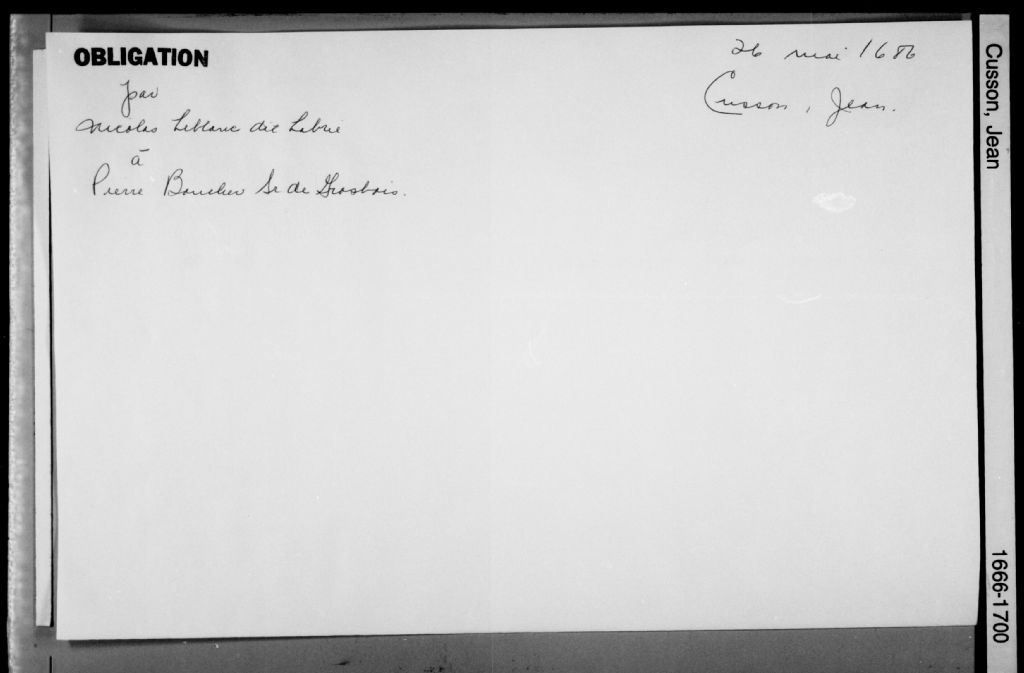 OBLIGATION
26 mai 1686
par
Cusson, Jean.
Nicolas Leblanc dit Labrie
à
Pierre Boucher Sr de Grosbois.
Cusson, Jean
1666-1700